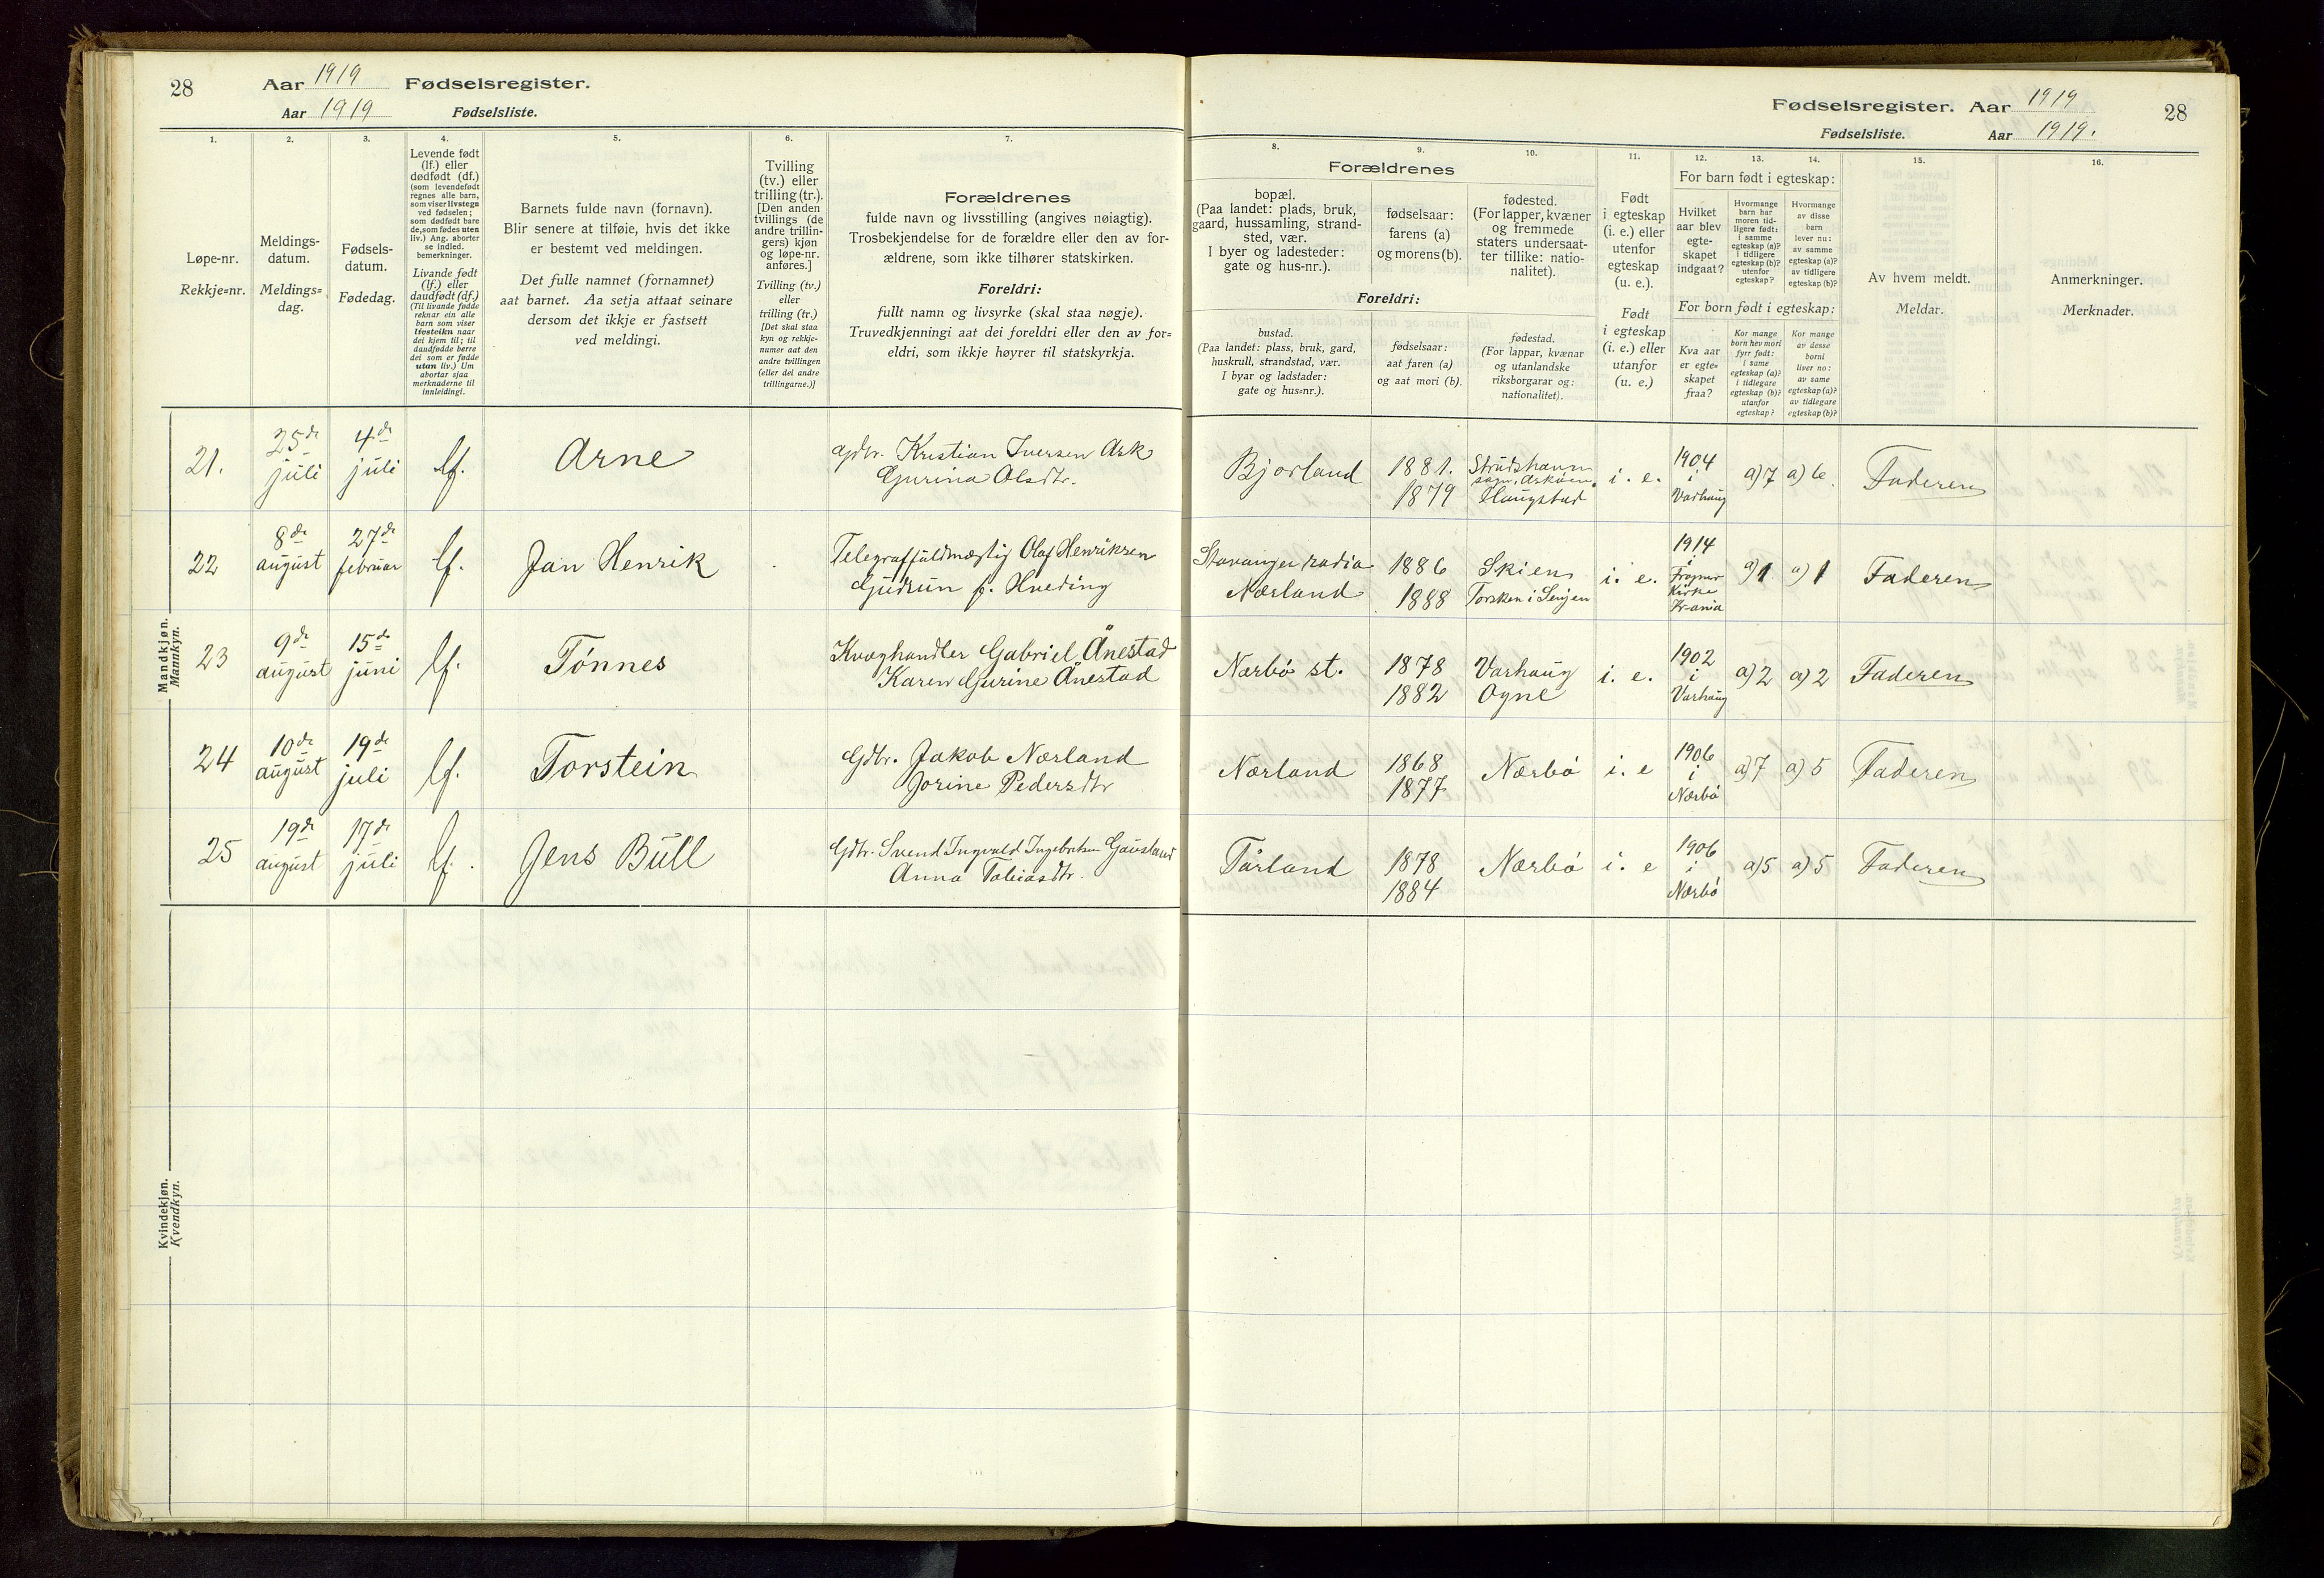 28 Aar 1919 Fødselsregister.
Aar 1919 Fødselsliste.
1.
2.
3.
4.
5.
6.
7.
Løpe-nr.
Rekkje=nr.
Meldings-
datum.
Meldings=
dag.
Fødsels-
datum.
Fødedag.
Levende født
(lf.) eller
dødfødt (df.)
(som levendefødt
regnes alle barn,
som viser livstegn
ved fødselen;
som dødfødt bare
de, som fødes uten
liv.) Ang. aborter
se indled.
bemerkninger.
Livande født
(lf.) eller
daudfødt (df.)
(Til livande fødde
reknar ein alle
barn som viser
livsteikn naar
dei kjem til; til
daudfødde berre
dei som er fødde
utan liv.) Um
abortar sjaa
merknaderne til
innleidingi.
Barnets fulde navn (fornavn).
Blir senere at tilføie, hvis det ikke
er bestemt ved meldingen.
Det fulle namnet (fornamnet)
aat barnet. Aa setja attaat seinare
dersom det ikkje er fastsett
ved meldingi.
Tvilling
(tv.) eller
trilling (tr.).
[Den anden
tvillings (de
andre trillin-
gers) kjøn
og løpe-nr.
anføres.]
Tvilling (tv.)
eller
trilling (tr.)
[Det skal staa
kyn og rekkje-
numer aat den
andre tvillingen
(eller dei andre
trillingarne.)]
Forældrenes
fulde navn og livsstilling (angives nøiagtig).
Trosbekjendelse for de forældre eller den av for-
ældrene, som ikke tilhører statskirken.
Foreldri:
fullt namn og livsyrke (skal staa nøgje).
Truvedkjenningi aat dei foreldri eller den av for=
eldri, som ikkje høyrer til statskyrkja.
Mandkjøn.
Mannkyn.
21.
25de
juli
4de
juli
lf.
Arne
Gdbr. Kristian Iversen Ask
Gurina Olsdtr.
22
8de
august
27de
februar
lf.
Jan Henrik
Telegraffuldmægtig Olaf Henriksen
Gudrun f. Hveding
23
9de
august
15de
juni
lf.
Tönnes
Kvæghandler Gabriel Ånestad
Karen Gurine Ånestad
24
10de
august
19de
juli
lf.
Torstein
Gdbr. Jakob Nærland
Jorine Pedersdtr
25
19de
august
17de
juli
lf.
Jens Bull
Gdbr. Svend Ingvald Ingebretsen Gausland
Anna Tobiasdtr.
Kvindekjøn.
Kvendkyn.
Fødselsregister. Aar 1919 28
Fødselsliste. Aar 1919.
8.
9.
10.
11.
12.
13.
14.
15.
16.
Forældrenes
bopæl.
(Paa landet: plads, bruk,
gaard, hussamling, strand-
sted, vær.
I byer og ladesteder:
gate og hus-nr.).
fødselsaar:
farens (a)
og morens (b).
fødested.
(For lapper, kvæner
og fremmede
staters undersaat-
ter tillike: natio-
nalitet).
Foreldri:
bustad.
(Paa landet: plass, bruk, gard,
huskrull, strandstad, vær.
I byar og ladstader:
gate og hus=nr.).
fødselsaar:
aat faren (a)
og aat mori (b).
fødestad.
(For lappar, kvænar
og utanlandske
riksborgarar og:
nationalitet).
Født
i egteskap
(i. e.) eller
utenfor
egteskap
(u. e.).
Født
i egteskap
(i. e.) eller
utanfor
(u. e.)
For barn født i egteskap:
Hvilket
aar blev
egte-
skapet
indgaat?
Hvormange
barn har
moren tid-
ligere født:
i samme
egteskap (a)?
i tidligere
egteskap (b)?
utenfor
egteskap?
Hvormange
av disse
barn
lever nu:
av samme
egteskap (a)?
av tidligere
egteskap (b)?
For born født i egteskap:
Kva aar
er egte-
skapet
fraa?
Kor mange
born hev mori
fyrr født:
i same
egteskap (a)?
i tidlegare
egteskap (b)?
utanfor
egteskap?
Kor mange
av desse
borni
liver no:
av same
egteskap (a)?
av tidlegare
egteskap (b)?
Av hvem meldt.
Meldar.
Anmerkninger.
Merknader.
Bjorland
1881.
1879
Strudshavn
sogn, Askøen.
Haugstad
i. e.
1904
i
Varhaug
a) 7
a) 6.
Faderen
Stavanger radio
Nærland
1886
1888
Skien
Torsken i Senjen
i. e.
1914
i
Frogner
Kirke
Kr.ania
a) 1
a) 1
Faderen
Nærbö st.
1878
1882
Varhaug
Ogne
i. e.
1902
i
Varhaug
a) 2
a) 2
Faderen
Nærland
1868
1877
Nærbö
i. e
1906
i
Nærbö
a) 7
a) 5
Faderen
Tårland
1878
1884
Nærbö
i. e
1906
i
Nærbö
a) 5
a) 5
Faderen